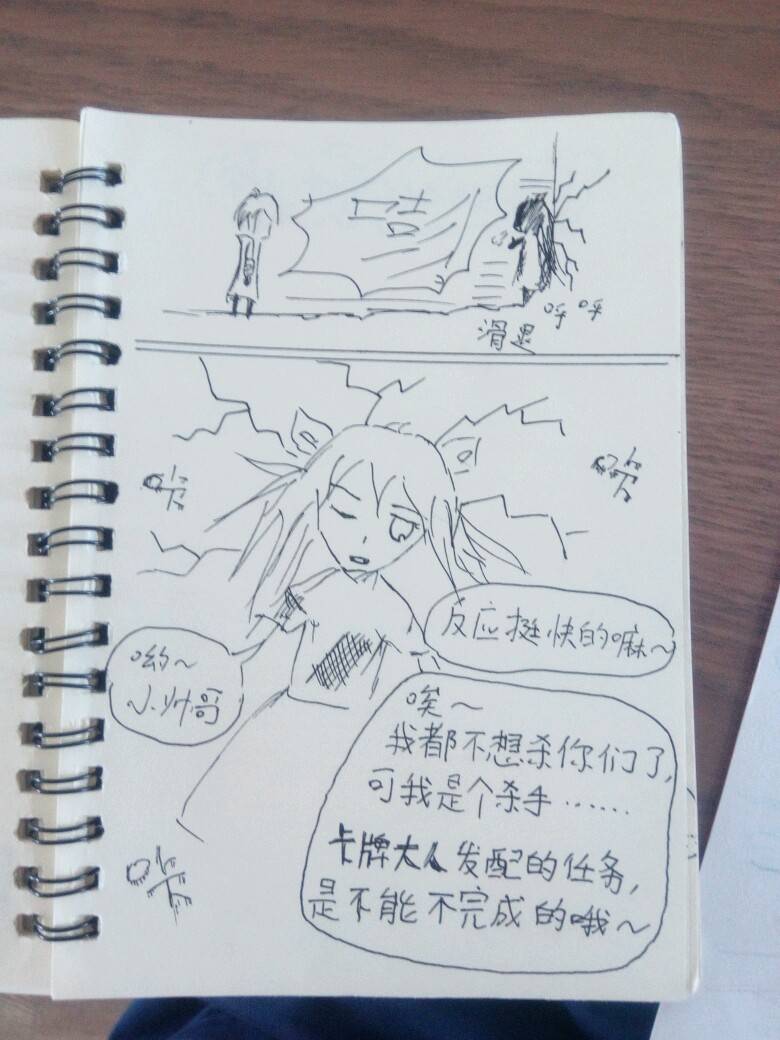 咭
呼呼
滑
咔
咔
哟~
小帅哥
反应挺快的嘛~
唉~
我都不想杀你们了,
可我是个杀手……
卡牌大人发配的任务,
是不能不完成的哦~
咔